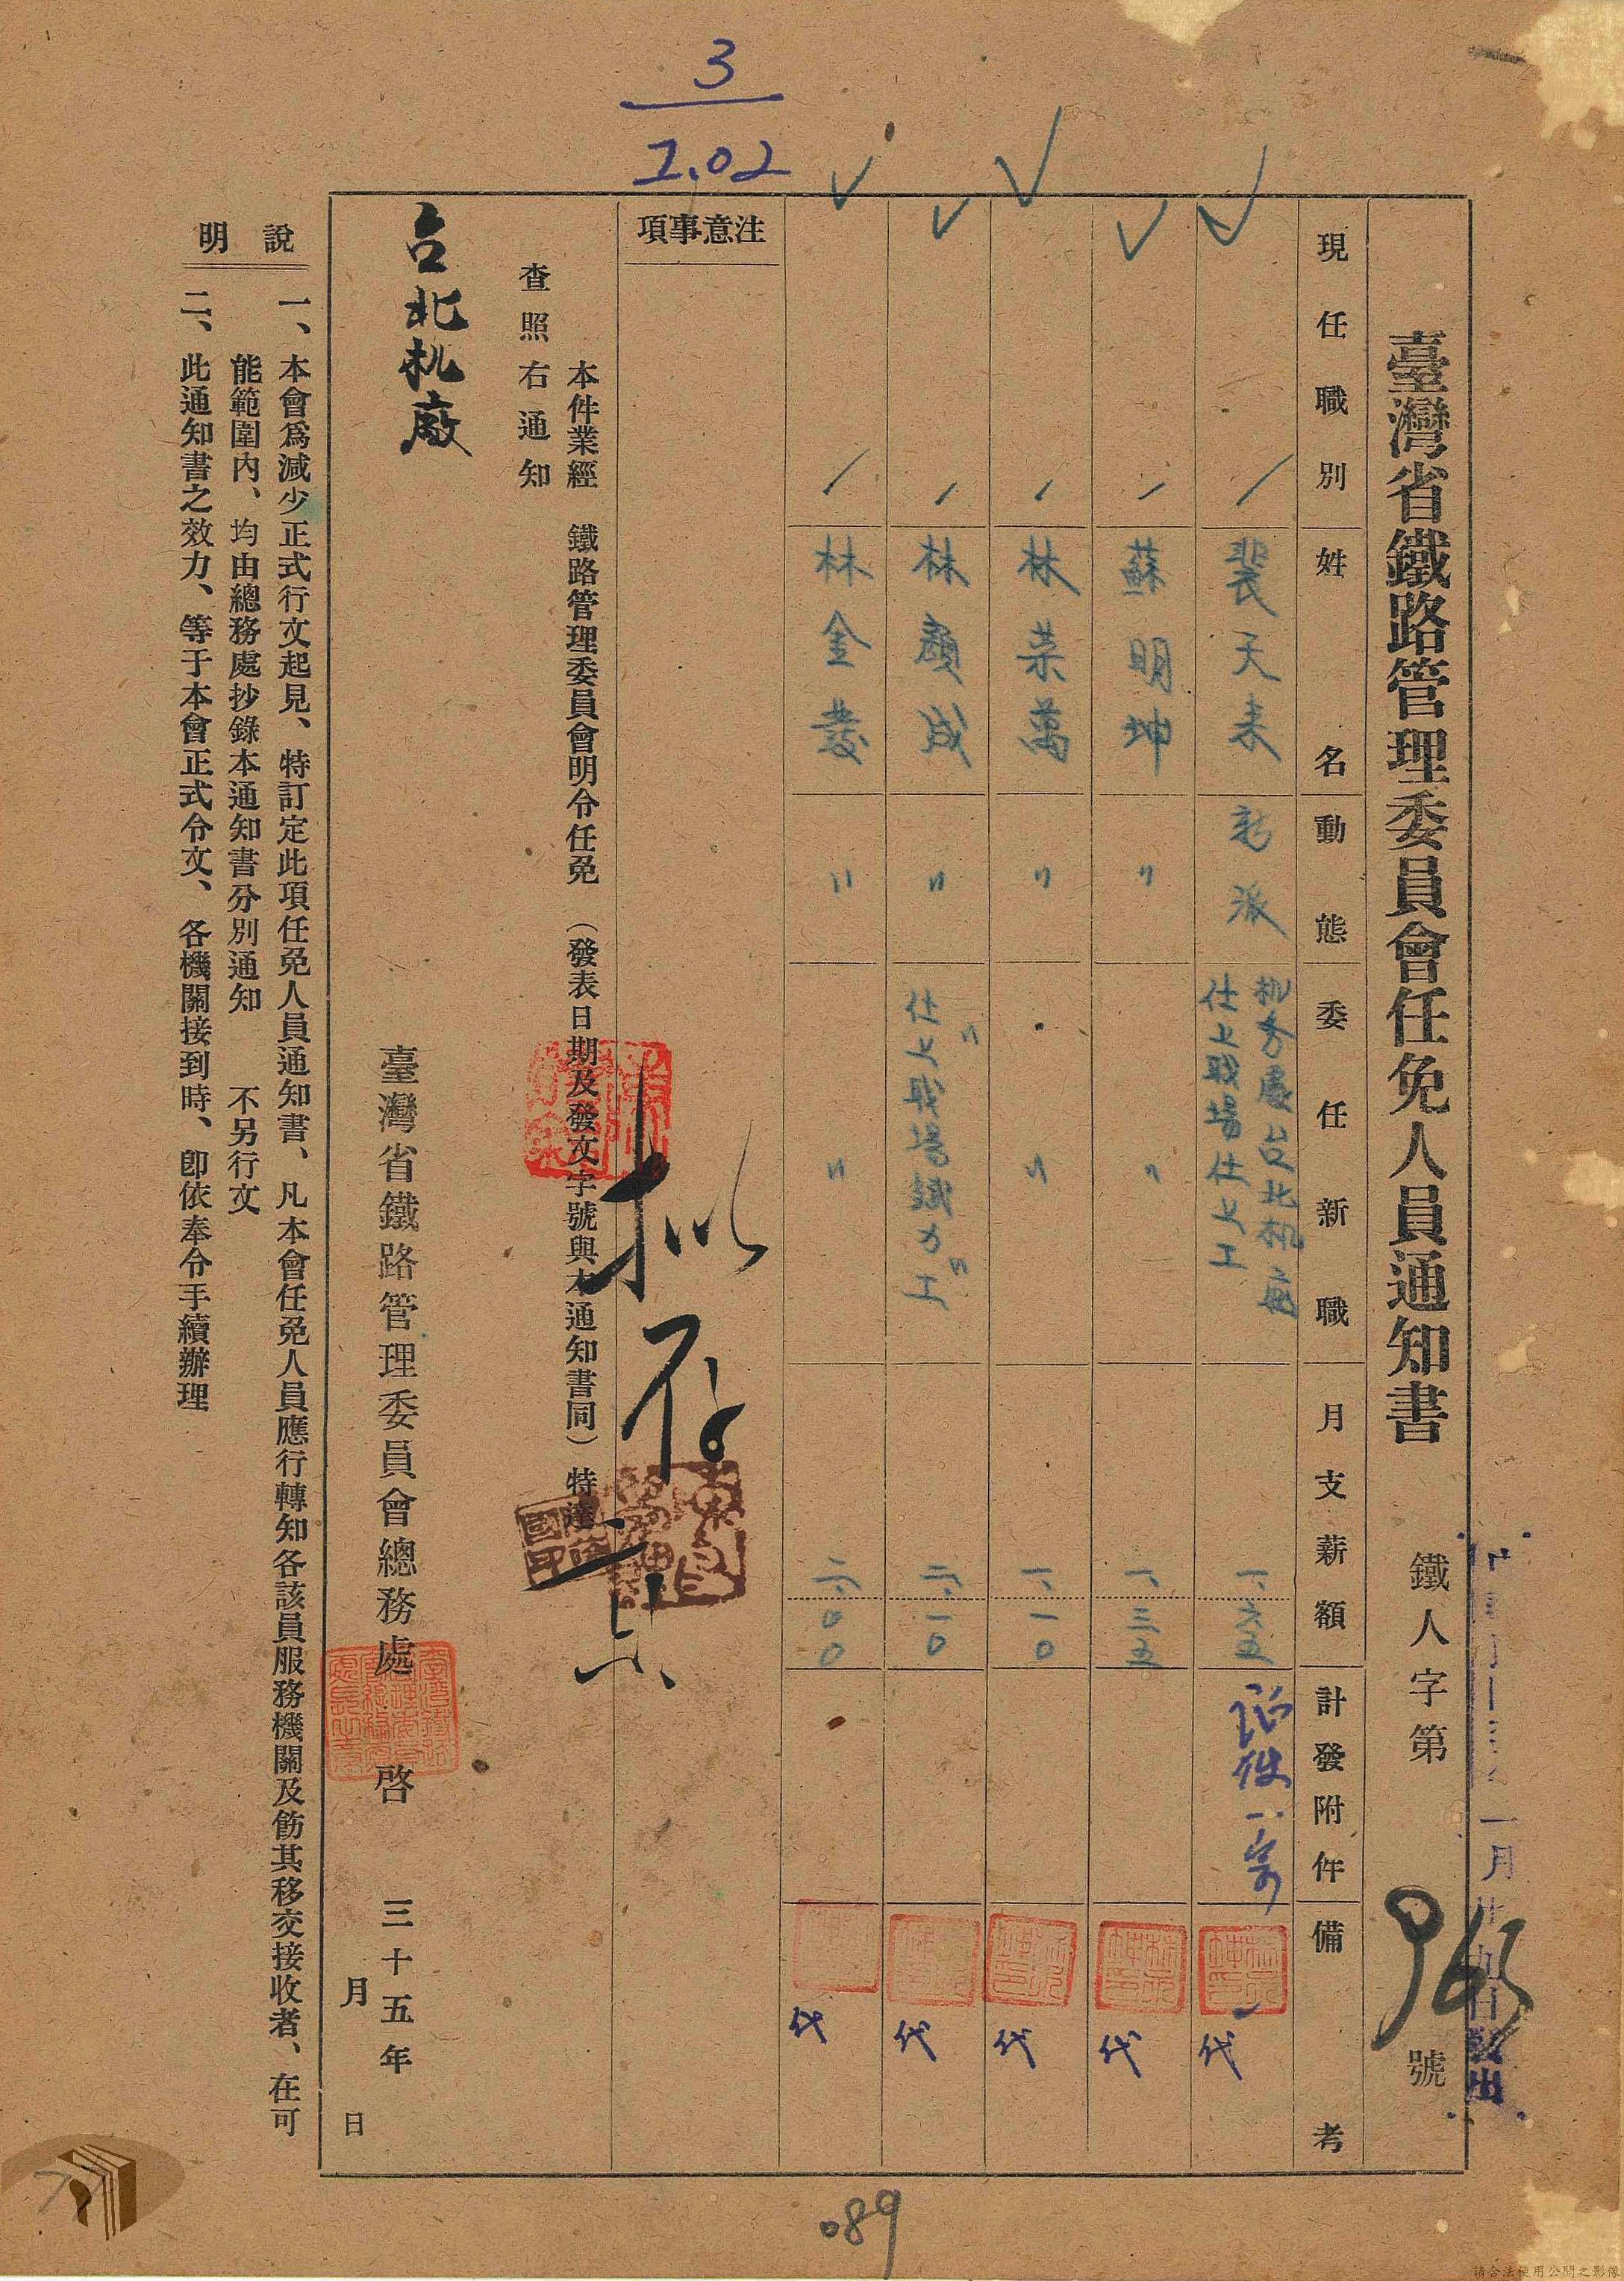 臺灣省鐵路管理委員會任免人員通知書
鐵人字第963號
一月廿九日發出
現任職別
姓名
動態
委任新職
月支薪額
計發附件
備考
裴天來
新派
机务處台北机廠
仕上職場仕上工
一、六五
代
蘇明坤
〃
〃
一、三五
代
林荣萬
〃
〃
一、一〇
代
林顏成
〃
〃
仕上職場鐵力工
二、一〇
代
林金發
〃
〃
二、四〇
代
注意事項
本件業經 鐵路管理委員會明令任免 (發表日期及發文字號與本通知書同) 特達
查照右通知
台北机廠
擬存
臺灣省鐵路管理委員會總務處 啓 三十五年
月 日
說明
一、本會爲減少正式行文起見、特訂定此項任免人員通知書、凡本會任免人員應行轉知各該員服務機關及飭其移交接收者、在可
能範圍内、均由總務處抄錄本通知書分別通知 不另行文
二、此通知書之效力、等于本會正式令文、各機關接到時、卽依奉令手續辦理
3
2.02
089
請合法使用公開之影像